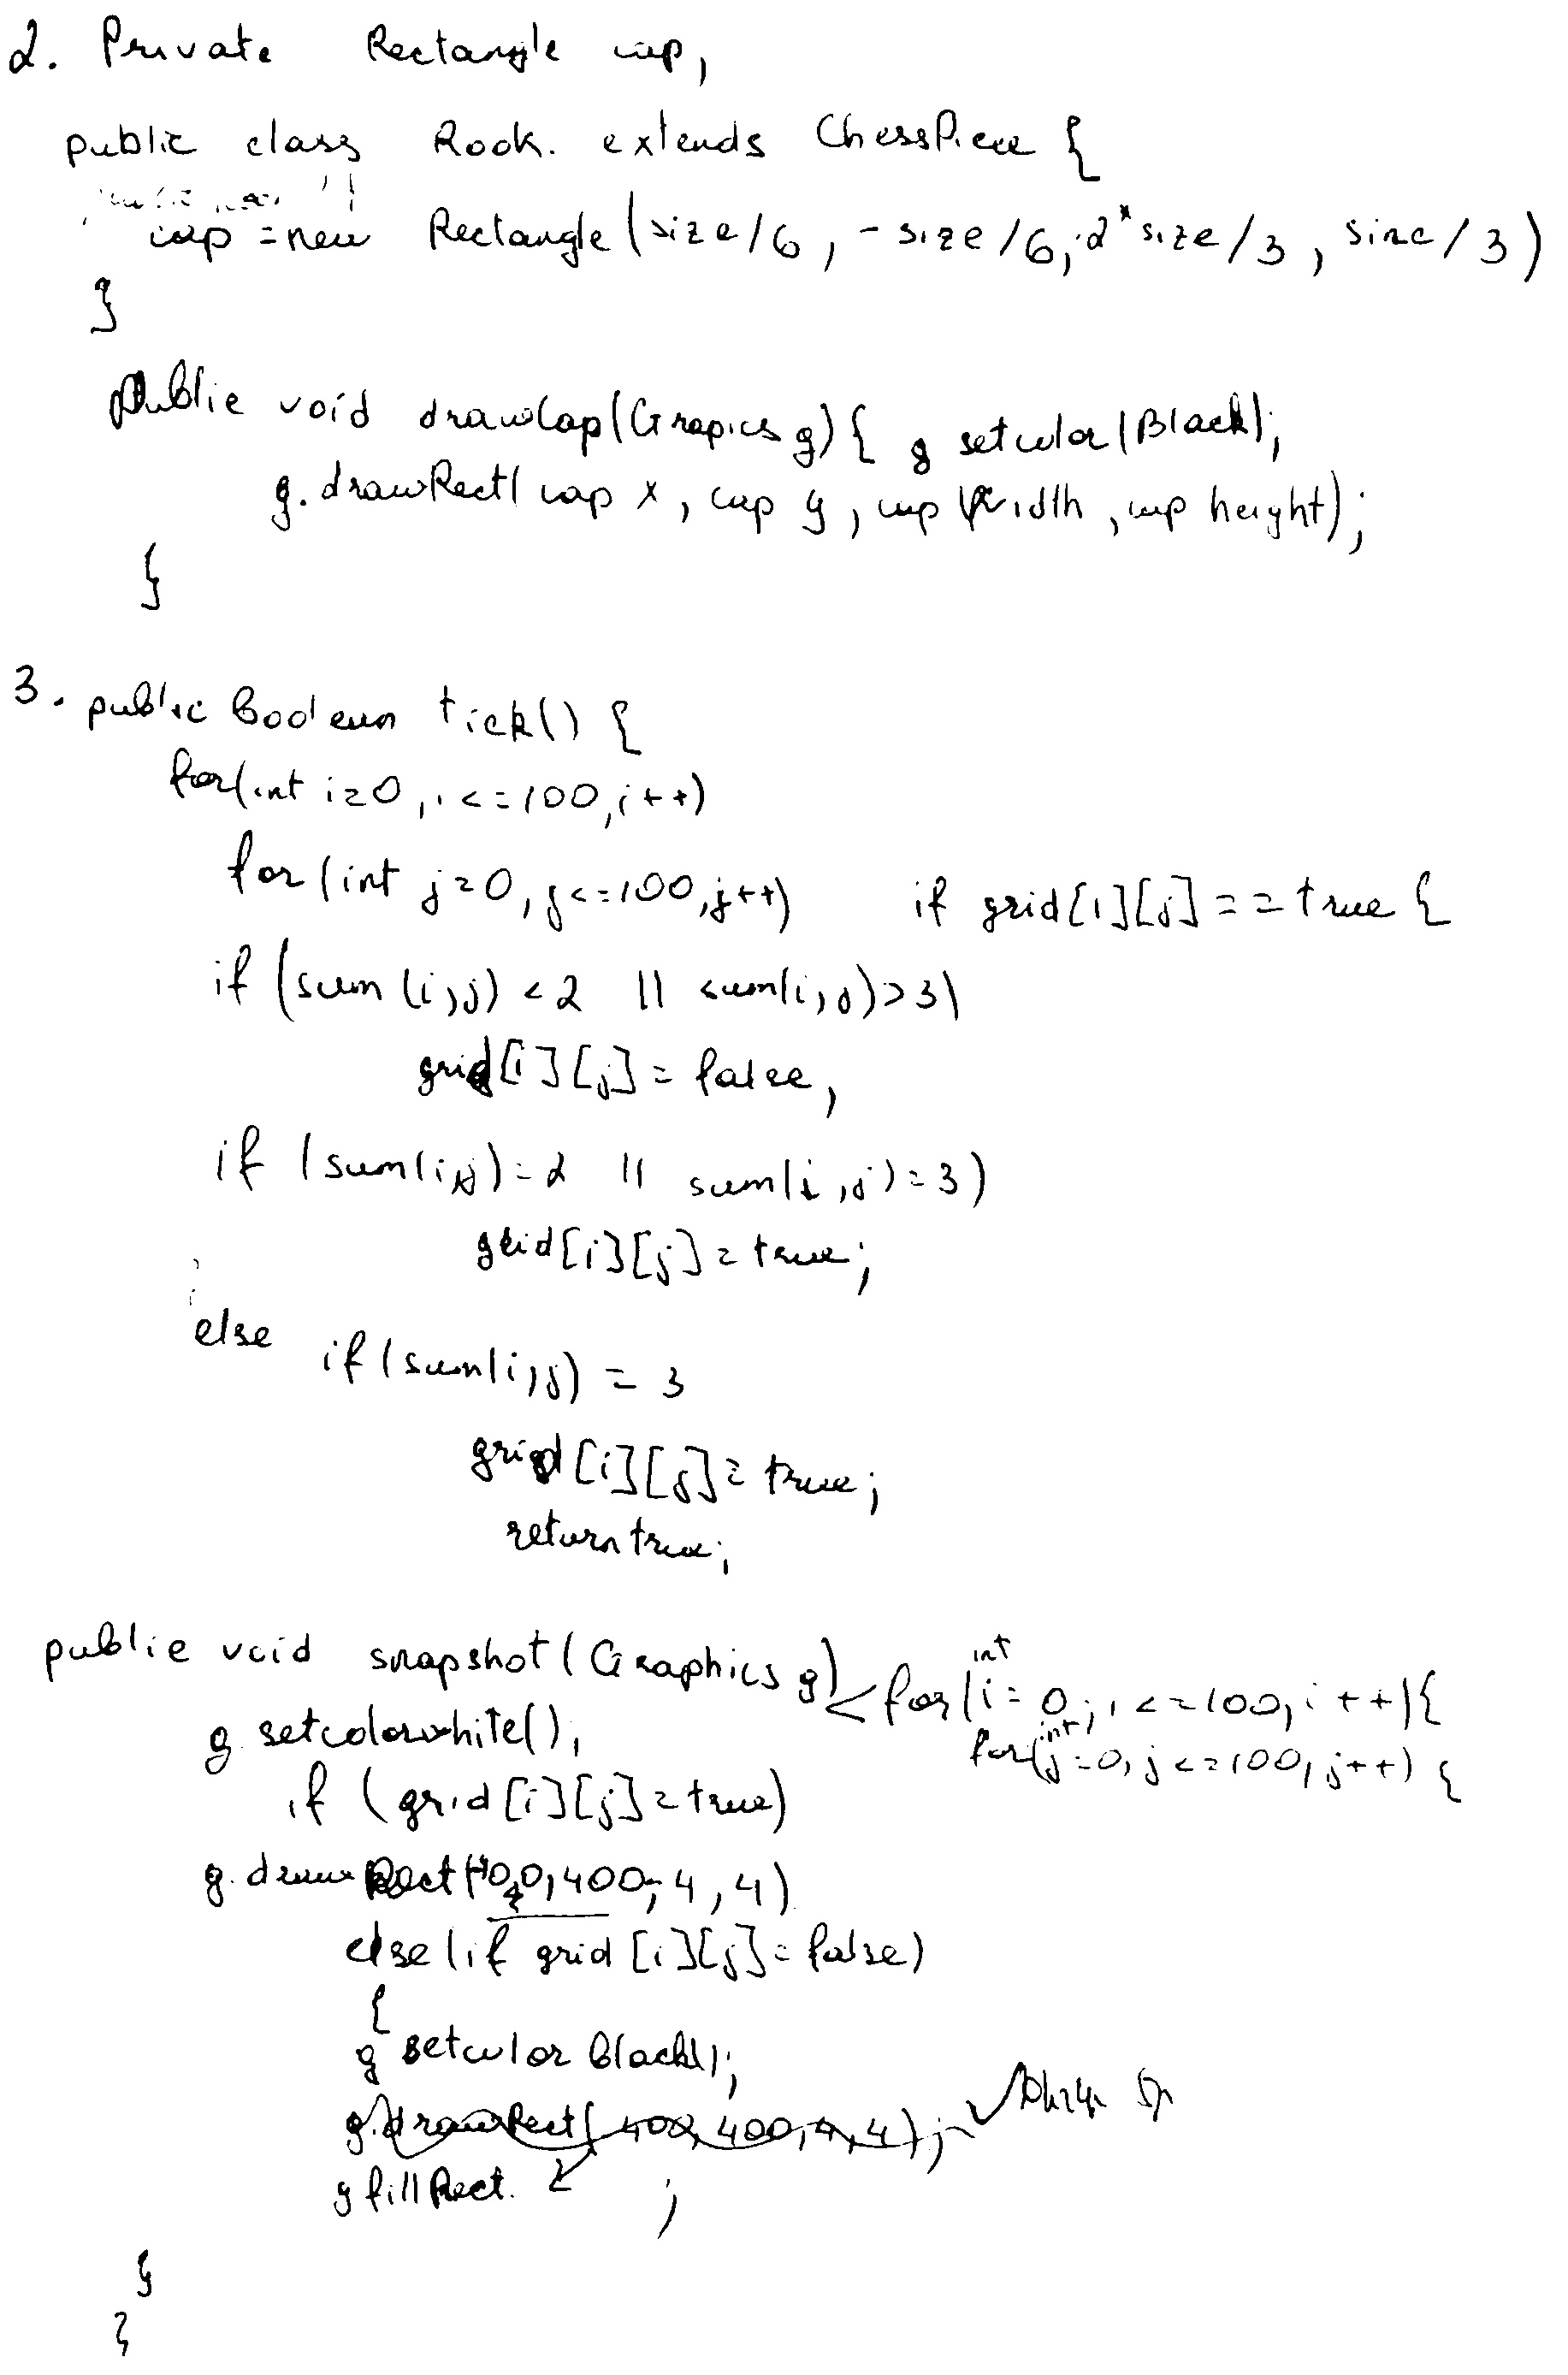 2. Private Rectangle cap,
public class Rook. extends ChessPiece {
cap = new Rectangle (size/6, -size/6, 2*size/3, size/3)
}
public void drawCap(Grapics g) { g setcolor(Black);
g.drawRect( cap x, cap y, cap width, cap height);
}
3. public Boolean tick() {
for(int i=0, i<=100, i++)
for (int j=0, j<=100, j++) if grid[i][j] == true {
if (sum (i,j) <2 || sum(i,j)>3)
grid[i][j] = false,
if (sum(i,j)=2 || sum(i,j)=3)
grid[i][j] = true;
else if (sum(i,j) = 3
grid [i][j] = true;
return true;
public void snapshot (Graphics g) < for (int i = 0; i <=100, i++){
g. setcolorwhite(); for(int j=0, j<=100, j++) {
if (grid [i][j] = true)
g. draw Rect( 400, 400, 4, 4)
else (if grid [i][j] = false)
{
g setcolor Black();
g.drawRect( 400, 400, 4, 4);
g fillRect. ;
}
}